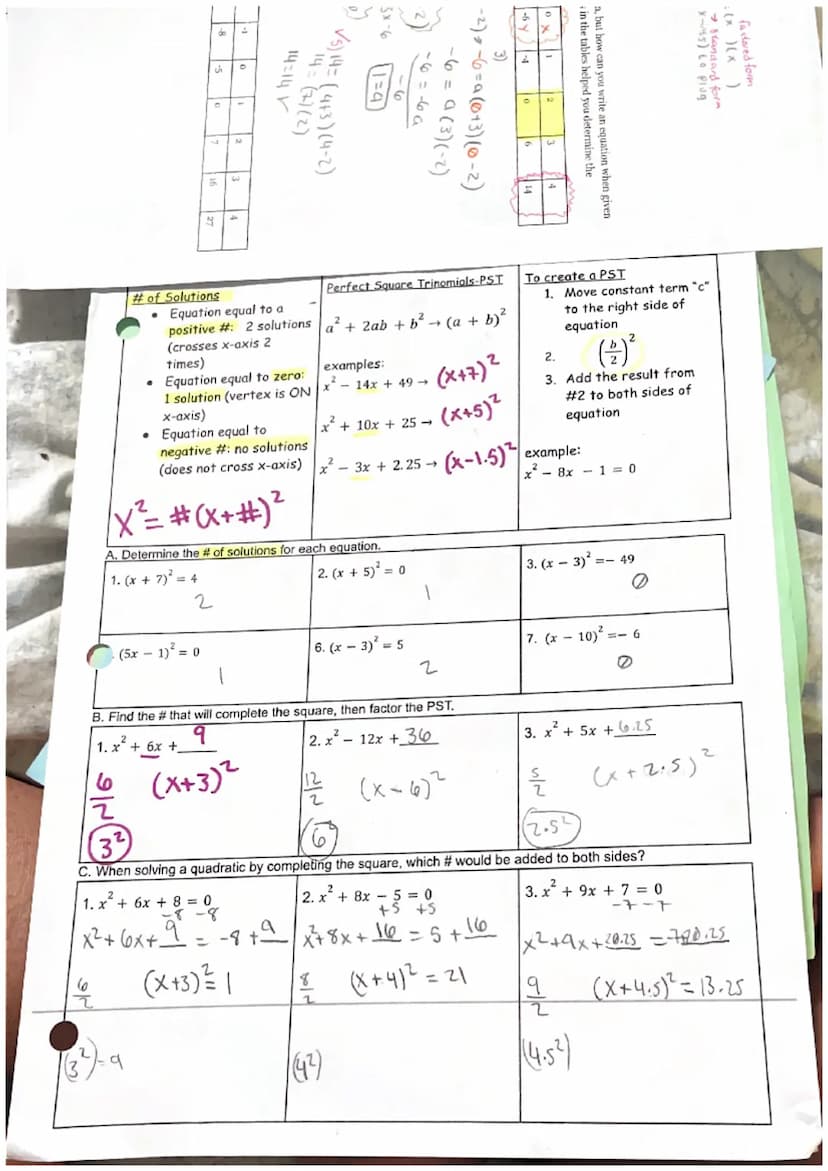 factored form
: (x   )(x   )
→ standard form
n, but how can you write an equation when given
in the tables helped you determine the
0 X 1 2 3 4
-6 Y -4 0 6 14
3)
-6 = a(0+3)(0-2)
-6 = a(3)(-2)
-6 = -6a
-6
1=a
14 = (4+3)(4-2)
14 = (7)(2)
14=14 ✓
-1 0 1 2 3 4
-8 -5 0 7 16 27
# of Solutions
• Equation equal to a
positive #: 2 solutions
(crosses x-axis 2
times)
• Equation equal to zero:
1 solution (vertex is ON
x-axis)
• Equation equal to
negative #: no solutions
(does not cross x-axis)
X² = #(X+#)²
Perfect Square Trinomials-PST
a² + 2ab + b² → (a + b)²
examples:
x² − 14x + 49 → (x+7)²
x² + 10x + 25 → (x+5)²
x² − 3x + 2.25 → (x-1.5)²
To create a PST
1. Move constant term "c"
to the right side of
equation
2. (b/2)²
3. Add the result from
#2 to both sides of
equation
example:
x² − 8x − 1 = 0
A. Determine the # of solutions for each equation.
1. (x + 7)² = 4
2
2. (x + 5)² = 0
1
3. (x − 3)² =− 49
∅
. (5x − 1)² = 0
1
6. (x − 3)² = 5
2
7. (x − 10)² =− 6
∅
B. Find the # that will complete the square, then factor the PST.
1. x² + 6x + 9
6/2 (x+3)²
3²
2. x² − 12x + 36
12/2 (x-6)²
6²
3. x² + 5x + 6.25
5/2 (x+2.5)²
2.5²
C. When solving a quadratic by completing the square, which # would be added to both sides?
1. x² + 6x + 8 = 0
-8 -8
x²+6x+ 9 = -8 + 9
6/2 (x+3)² = 1
(3²)=9
2. x² + 8x − 5 = 0
+5 +5
x²+8x+ 16 = 5 + 16
8/2 (x+4)² = 21
(4²)
3. x² + 9x + 7 = 0
-7 -7
x²+9x+ 20.25 = -7 20.25
9/2 (x+4.5)² = 13.25
(4.5²)